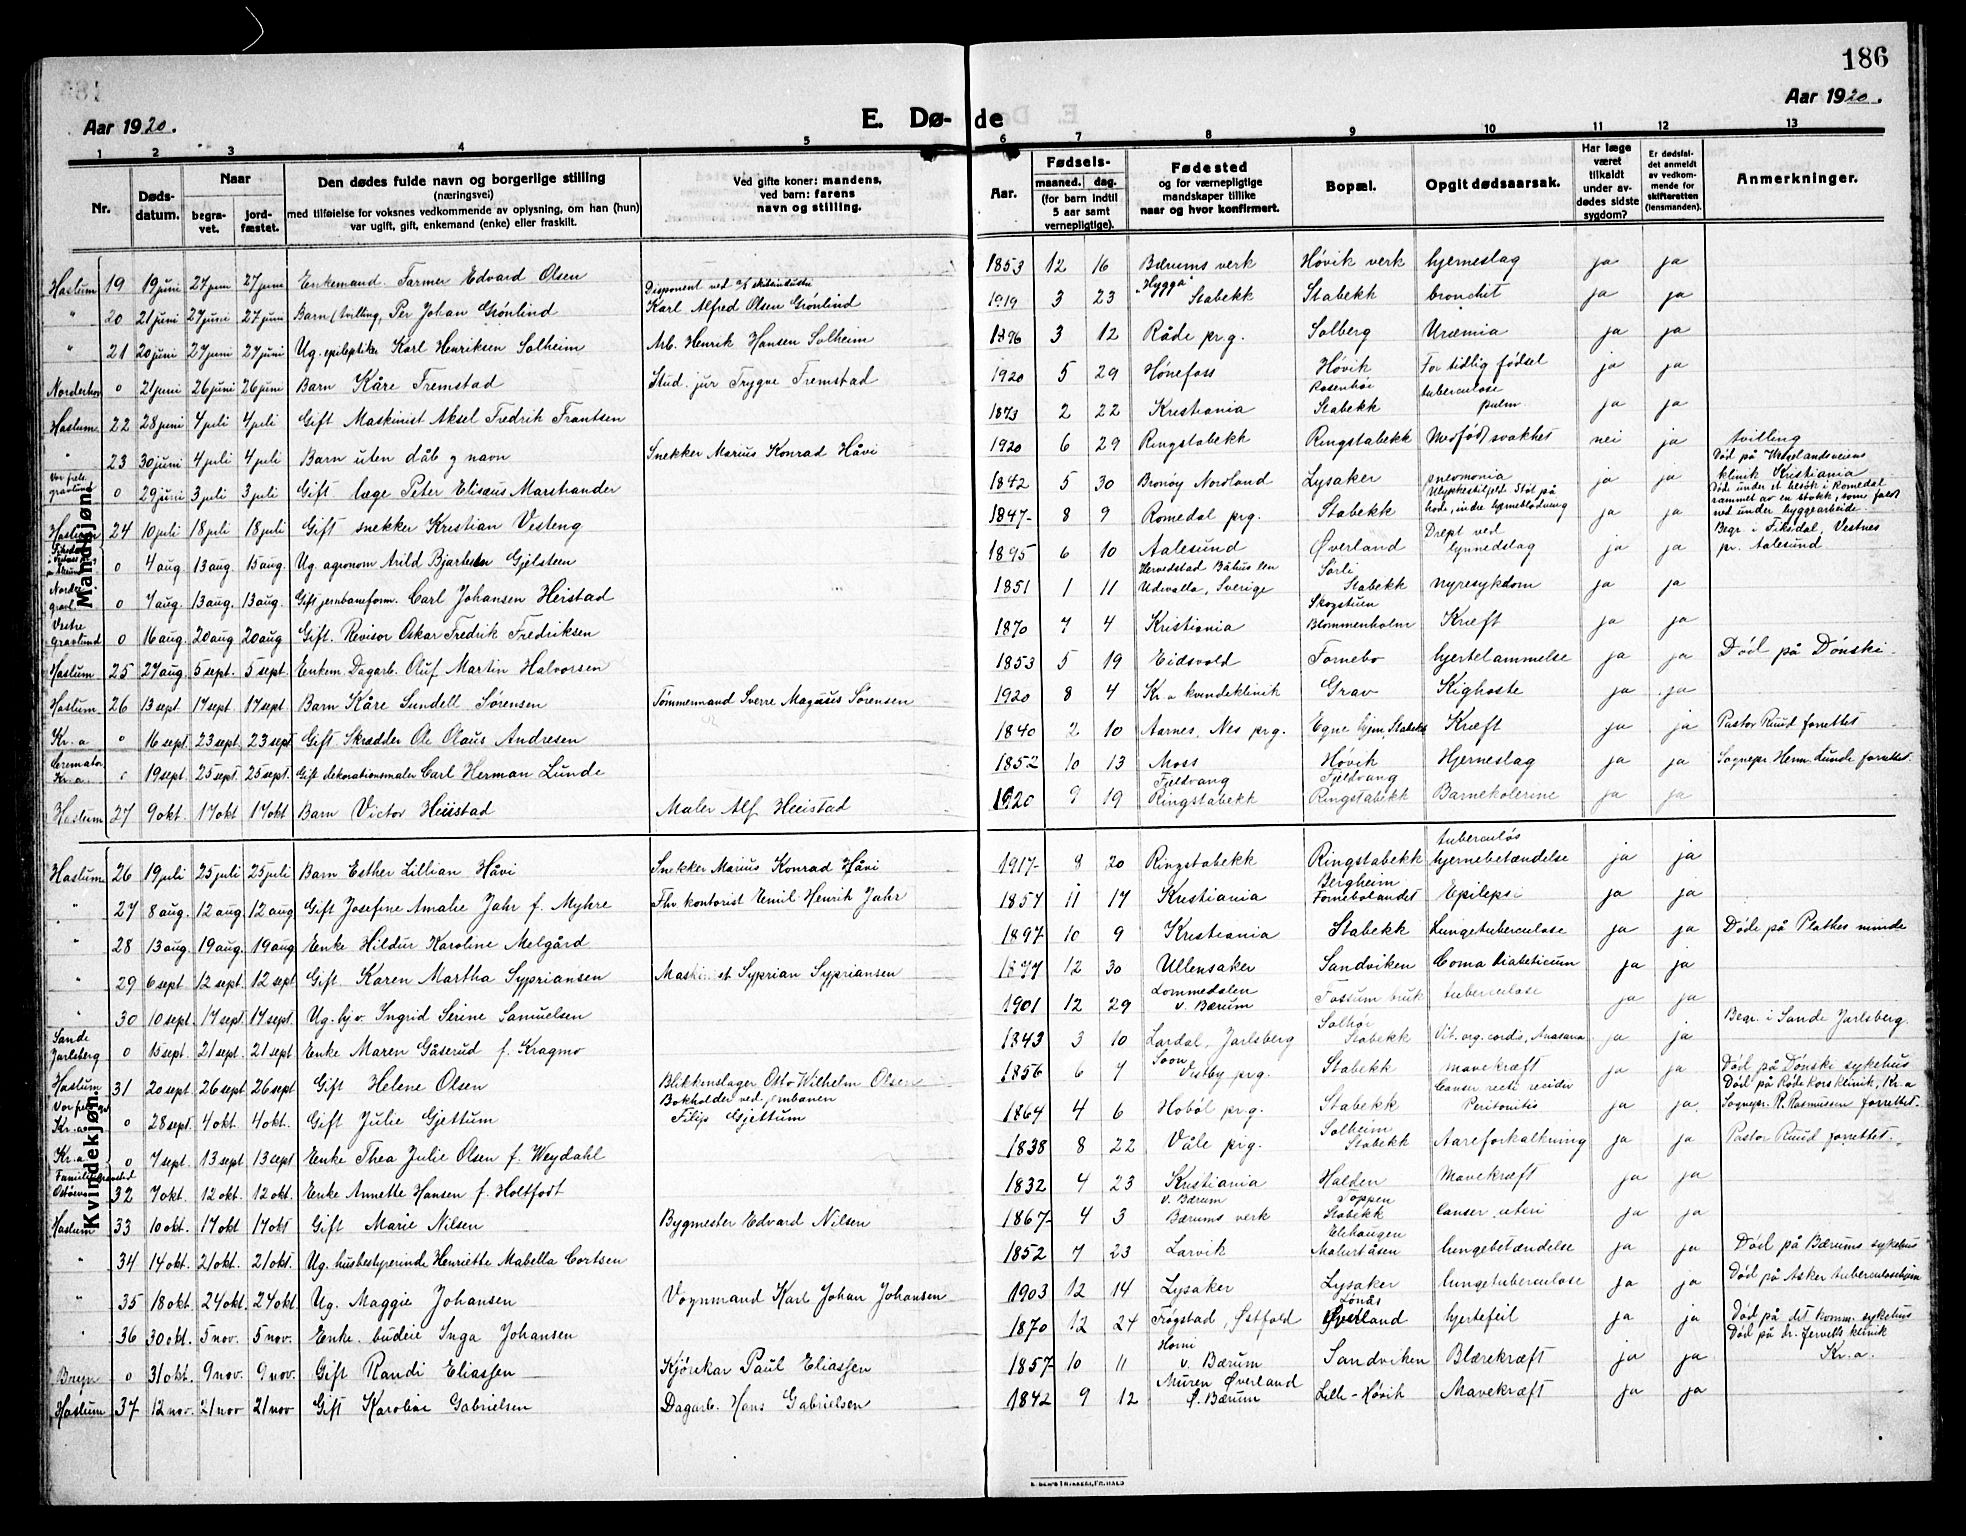 186
Aar 1920.
E. Dø- de
Aar 1920.
1 2 3 4 5 6 7 8 9 10 11 12 13
Nr.
Døds-
datum.
Naar
begra-
vet.
jord-
fæstet.
Den dødes fulde navn og borgerlige stilling
(næringsvei)
med tilføielse for voksnes vedkommende av oplysning, om han (hun)
var ugift, gift, enkemand (enke) eller fraskilt.
Ved gifte koner: mandens,
ved barn: farens
navn og stilling.
Aar.
Fødsels-
maaned. dag.
(for barn indtil
5 aar samt
vernepligtige).
Fødested
og for værnepligtige
mandskaper tillike
naar og hvor konfirmert.
Bopæl.
Opgit dødsaarsak.
Har læge
været
tilkaldt
under av-
dødes sidste
sygdom?
Er dødsfal-
det anmeldt
av vedkom-
mende for
skifteretten
(lensmanden).
Anmerkninger.
Mandkjøn.
Haslum 19 19 juni 27 juni 27 juni Enkemand. Farmer Edvard Olsen 1853 12 16 Bærums verk Høvik verk hjerneslag ja ja
" 20 21 juni 27 juni 27 juni Barn (tvilling) Per Johan Grønlind Disponent ved Karl Alfred Olsen Grønlind 1919 3 23 Stabekk Stabekk bronchit ja ja
" 21 20 juni 27 juni 27 juni Ug. epileptiker Karl Henriksen Solheim Arb. Henrik Hansen Solheim 1896 3 12 Råde prg. Solberg Uræmia ja ja
Norderhov 0 21 juni 26 juni 26 juni Barn Kåre Fremstad Stud. jur Trygve Fremstad 1920 5 29 Hønefoss Høvik For tidlig fødsel ja ja
Haslum 22 28 juni 4 juli 4 juli Gift Maskinist Aksel Fredrik Frantsen 1873 2 22 Kristiania Rosenhøi Stabekk tuberculose pulm ja ja
" 23 30 juni 4 juli 4 juli Barn uten dåb og navn Snekker Marius Konrad Håvi 1920 6 29 Ringstabekk Ringstabekk Medfødt svakhet nei ja tvilling
Vor frels. gravlund 0 29 juni 3 juli 3 juli Gift læge Peter Elisæus Marstrander 1842 5 30 Brønøy Nordland Lysaker pneomonia ja ja Død på Wergelandsveiens klinik Kristiania
Haslum 24 10 juli 18 juli 18 juli Gift snekker Kristian Vesteng 1847 8 9 Romedal prg. Stabekk Ulykkestilfelde Støt på hode, indre hjerneblødning ja ja Død under et besøk i Romedal rammet av en stokk, som faldt ned under byggearbeide.
0 4 aug 13 aug. 15 aug. Ug. agronom Arild Bjarhedin Gjelsteen 1895 6 10 Aalesund Øverland Drept ved lynnedslag ja ja Begr. i Fiksdal, Vestnes pr. Aalesund
Nordre gravl 0 7 aug. 13 aug. 13 aug. Gift jernbaneform. Carl Johansen Heistad 1851 1 11 Hervedstad Båhus len Udvalla, Sverige Sørli Stabekk nyresykdom ja ja
Vestre gravlund 0 16 aug. 20 aug 20 aug Gift. Revisor Oskar Fredrik Fredriksen 1870 7 4 Kristiania Skogstuen Blommenholm Kræft ja ja
Haslum 25 27 aug 5 sept. 5 sept. Enkem. Dagarb. Oluf Martin Halvorsen 1853 5 19 Eidsvold Fornebo hjertelammelse ja ja Død på Dønski
Haslum 26 13 sept 17 sept 17 sept Barn Kåre Sundell Sørensen Tømmermand Sverre Magnus Sørensen 1920 8 4 Kr.a kvindeklinik Grav Kighoste ja ja
Kr.a 0 16 sept. 23 sept. 23 sept Gift Skrædder Ole Olaus Andresen 1840 2 10 Aarnes, Nes prg. Egne hjem, Stabekk Kræft ja ja Pastor Ruud forrettet
Cremator Kr.a. 0 19 sept. 25 sept. 25 sept. Gift dekorationsmaler Carl Herman Lunde 1852 10 13 Moss Høvik Hjerneslag ja ja Sognepr. Herm. Lunde forrettet
Haslum 27 9 okt. 17 okt 17 okt Barn Victor Heistad Maler Alf Heistad 1920 9 19 Fjeldvang Ringstabekk Fjeldvang Ringstabekk Barnekolerine ja ja
Kvindekjøn.
Haslum 26 19 juli 25 juli 25 juli Barn Esther Lillian Håvi Snekker Marius Konrad Håvi 1917 8 20 Ringstabekk Ringstabekk tuberculøs hjernebetændelse ja ja
" 27 8 aug. 12 aug 12 aug Gift Josefine Amalie Jahr f. Myhre Fhv kontorist Emil Henrik Jahr 1857 11 17 Kristiania Bergheim Fornebolandet Epilepsi ja ja
" 28 13 aug. 19 aug. 19 aug Enke Hildur Karoline Melgård 1897 10 9 Kristiania Stabekk Lungetuberculose ja ja Døde på Plathes minde
" 29 6 sept 12 sept 12 sept Gift Karen Martha Sypriansen Syprian Sypriansen 1877 12 30 Ullensaker Sandviken Coma Diabeticum ja ja
" 30 10 sept. 17 sept 17 sept. Ug. hjv. Ingrid Serine Samuelsen 1901 12 29 Lommedalen v. Bærum Fossum bruk tuberculose ja ja
Sande Jarlsberg 0 15 sept. 21 sept. 21 sept. Enke Maren Gåserud f. Kragmo 1843 3 10 Lardal, Jarlsberg Solhøi Stabekk Vit. org. cordis, Anasarca ja ja Begr. i Sande Jarlsberg.
Haslum 31 20 sept 26 sept 26 sept. Gift Helene Olsen Blikkenslager Otto Wilhelm Olsen 1856 6 7 Soon Vestby prg. Stabekk mavekræft ja ja Død på Dønski sykehus
Kr.a. 0 28 sept. 4 okt. 4 okt. Gift Julie Gjettum Bokholder ved Filip Gjettum 1864 4 6 Hobøl prg. Stabekk Canser recti Peritonitis ja ja Død på Røde Kors klinik, Kr.a Sognepr. R. Rasmussen forrettet.
Kr.a 0 7 sept. 13 sept 13 sept Enke Thea Julie Olsen f. Weydahl 1838 8 22 Våle prg. Solheim Stabekk Aareforkalkning ja ja Pastor Ruud forrettet.
32 7 okt. 12 okt. 12 okt. Enke Annette Hansen f. Holtfodt 1832 4 23 Kristiania Halden Mavekræft ja ja
Haslum 33 10 okt. 17 okt 17 okt Gift Marie Nilsen Bygmester Edvard Nilsen 1867 4 3 v. Bærum Bærums verk Toppen Stabekk Canser uteri ja ja
" 34 14 okt. 21 okt. 21 okt. Ug. husbestyrerinde Henriette Mabella Cortsen 1852 7 23 Larvik lungebetændelse ja ja Død på Bærums sykehus
" 35 18 okt. 24 okt. 24 okt. Ug. Maggie Johansen Vognmand Karl Johan Johansen 1903 12 14 Lysaker Lysaker lungetuberculose ja ja Død på Asker tuberculosehjem
" 36 30 okt. 5 nov. 5 nov. Enke. budeie Inga Johansen 1870 12 24 Trøgstad, Østfold Øverland hjertefeil ja ja Død på det komm. sykehus
Bryn 0 31 okt. 9 nov. 9 nov. Gift Randi Eliassen Kjørekar Paul Eliassen 1857 10 11 Horni v. Bærum Sandviken Blærekræft ja ja Død på klinik Kr.a.
Haslum 37 12 nov. 21 nov 21 nov Gift Karoline Gabrielsen Dagarb. Hans Gabrielsen 1842 9 12 Muren Øverland Ø. Bærum Lille-Høvik Mavekræft ja ja